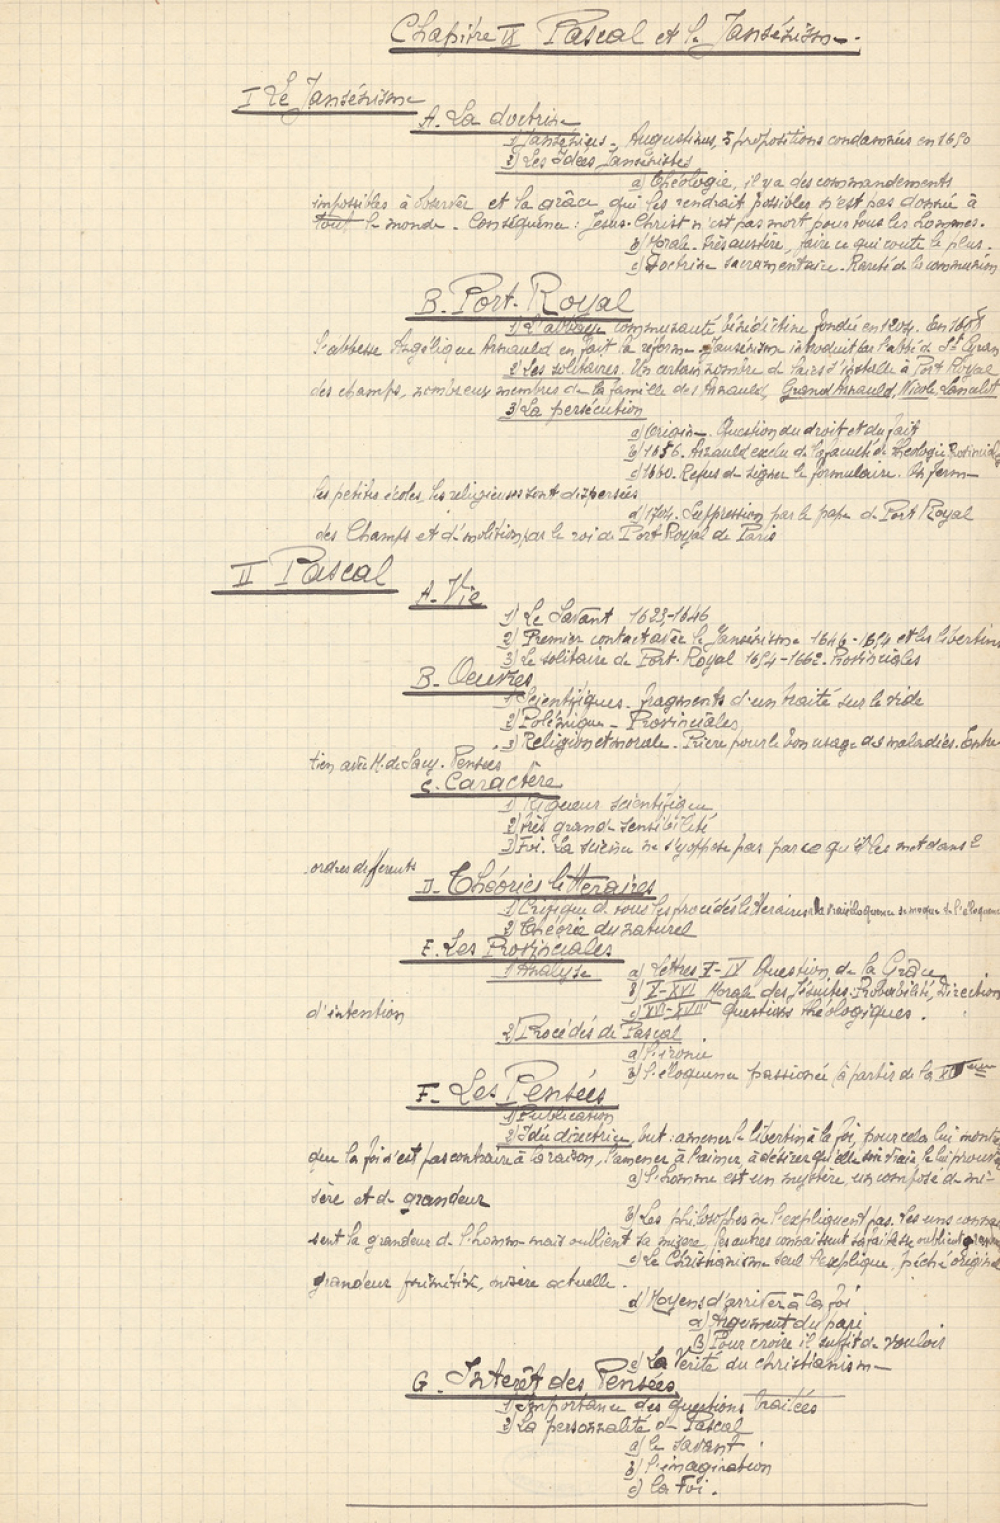 Chapitre IX Pascal et le Jansénisme.
I Le Jansénisme
A. La doctrine
1) Jansénius. Augustinus, 5 propositions condamnées en 1650
2) Les Idées Jansénistes
a) Théologie, il y a des commandements
impossibles à observer et la grâce qui les rendrait possibles n'est pas donnée à
tout le monde. Conséquence : Jésus-Christ n'est pas mort pour tous les hommes.
b) Morale. très austère, faire ce qui coute le plus.
c) Doctrine sacramentaire. Rareté de la communion
B. Port-Royal
1) L'abbaye communauté bénédictine fondée en 1204. En 1608
l'abbesse Angélique Arnauld en fait la réforme. Jansénisme introduit par l'abbé de St Cyran
2) Les solitaires. Un certain nombre de s'installe à Port Royal
des champs, nombreux membres de la famille des Arnauld, Grand Arnauld, Nicole, Lancelot
3) La persécution
a) Origine. Question du droit et du fait
b) 1656. Arnauld exclu de la faculté de Théologie
c) 1660. Refus de signer le formulaire. On ferme
les petites écoles, les religieuses sont dispersées
d) 1704. Suppression par le pape de Port Royal
des Champs et démolition par le roi de Port Royal de Paris
II Pascal
A. Vie
1) Le Savant 1623-1646
2) Premier contact avec le Jansénisme 1646-1654 et les libertins
3) Le solitaire de Port-Royal 1654-1662. Provinciales
B. Oeuvres
1) Scientifiques. fragments d'un traité sur le vide
2) Polémique - Provinciales
3) Religion et morale. Prière pour le bon usage des maladies. Entre
tien avec M. de Sacy. Pensées
C. Caractère
1) Rigueur scientifique
2) très grande sensibilité
3) Foi. La science ne s'y oppose pas parce qu'il les met dans 2
ordres différents
D. Théories littéraires
1) Critique de tous les procédés littéraires la vraie éloquence se moque de l'éloquence
2) Théorie du naturel
E. Les Provinciales
1) Analyse a) Lettres I-IV Question de la Grâce
b) V-XVI Morale des Jésuites: Probabilité, Direction
d'intention
c) XVI-XVIII Questions théologiques.
2) Procédés de Pascal
a) l'ironie
b) l'éloquence passionée (à partir de la
F. Les Pensées
1) Publication
2) Idée directrice, but : amener le libertin à la foi, pour cela lui montrer
que la foi n'est pas contraire à la raison, l'amener à l'aimer, à désirer qu'elle soit vraie le lui prouver
a) l'homme est un mystère, un composé de mi-
sère et de grandeur
b) Les philosophes ne l'expliquent pas. Les uns connais
sent la grandeur de l'homme mais oublient sa misère, les autres connaissent sa faiblesse oublient grandeur
c) Le Christianisme seul l'explique, péché originel
grandeur primitive, misère actuelle.
d) Moyens d'arriver à la foi
a) Argument du pari
B) Pour croire il suffit de vouloir
e) La Vérité du christianisme
G. Interêt des Pensées
1) Importance des questions traitées
2) La personnalité de Pascal
a) le savant.
b) l'imagination
c) la Foi.